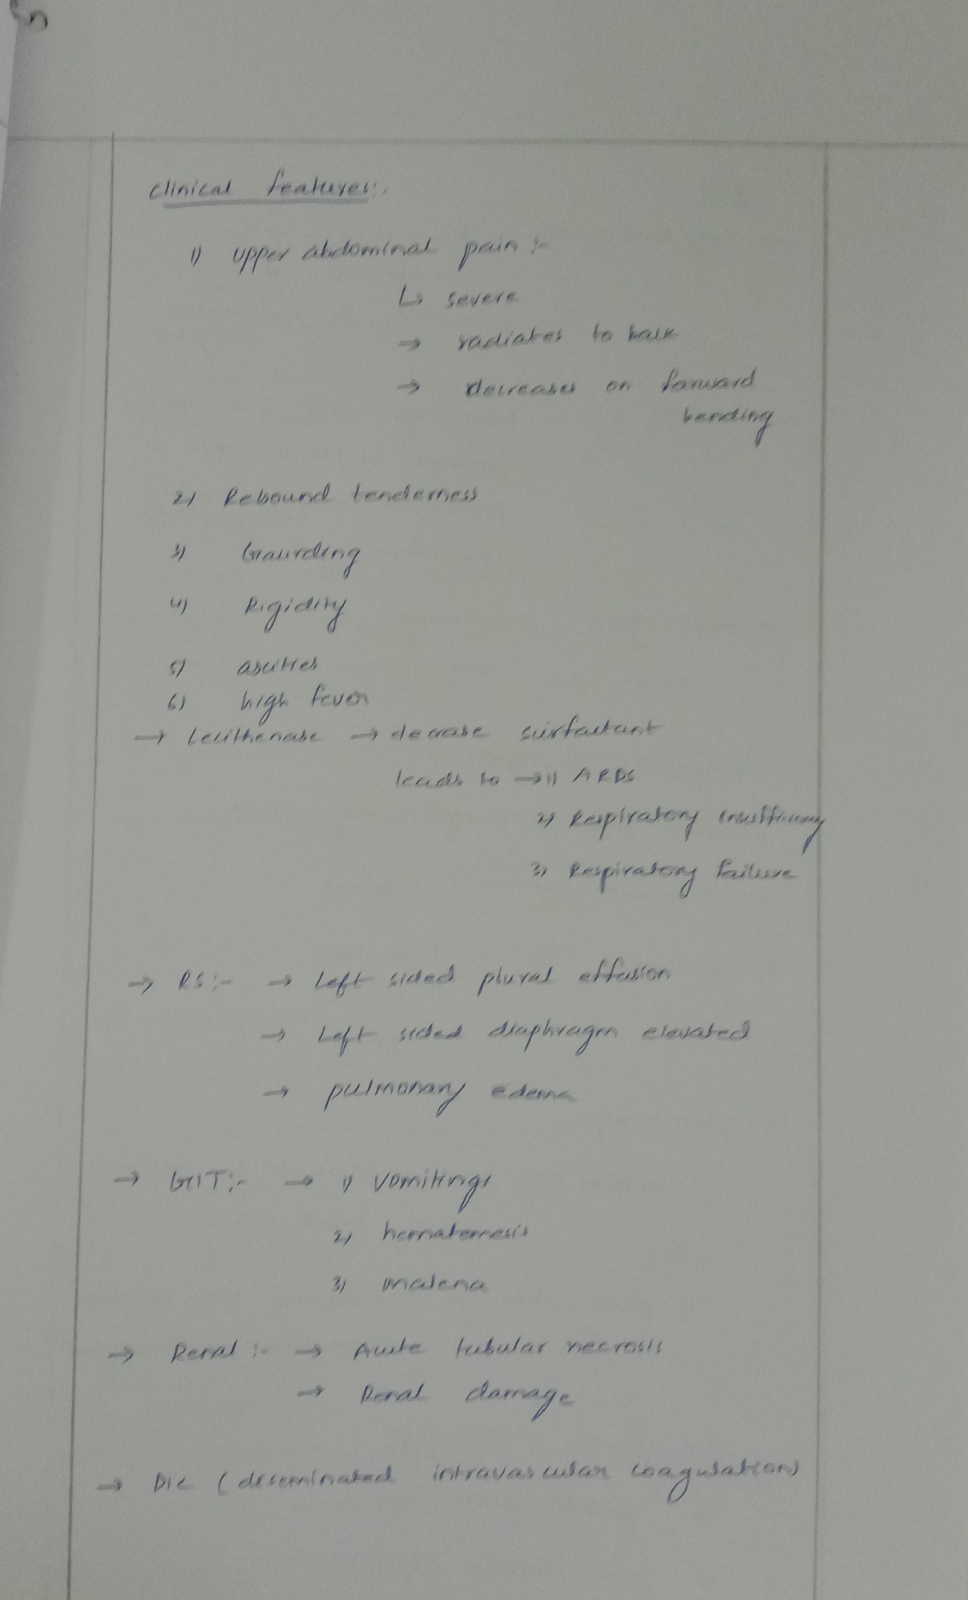 Clinical features:-
1) upper abdominal pain :-
↳ severe
→ radiates to back
→ decreases on forward
bending
2) Rebound tenderness
3) Gaurding
4) Rigidity
5) ascites
6) high fever
→ Lecithenase → decrase surfactant
leads to → 1) ARDS
2) Respiratory insufficiency
3) Respiratory failure
→ RS:- → Left sided plural effusion
→ Left sided diaphragm elevated
→ pulmonary edema
→ GIT:- → 1) vomitings
2) hematemesis
3) malena
→ Renal :- → Acute tubular necrosis
→ Renal damage
→ DIC (diseminated intravascular coagulation)